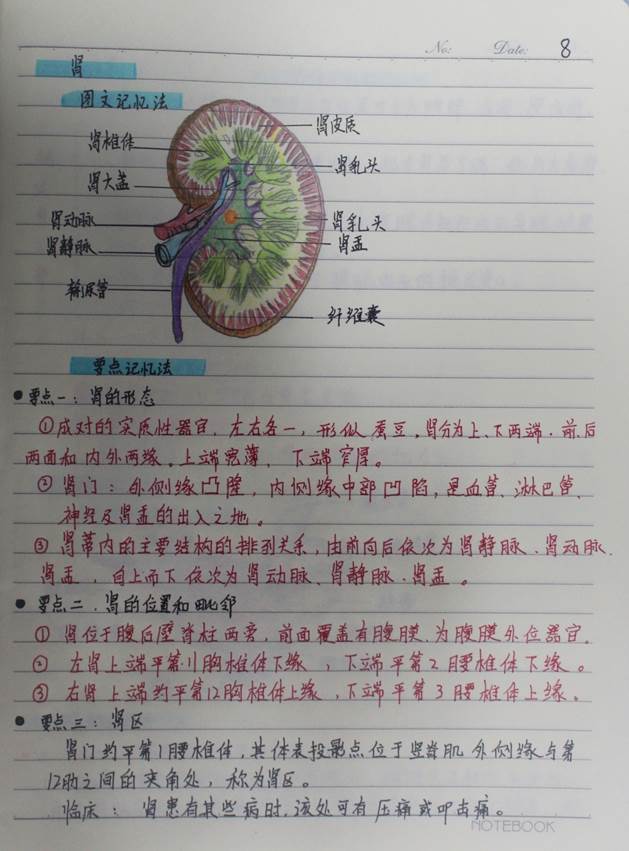 No: Date: 8
肾
图文记忆法
肾皮质
肾椎体
肾乳头
肾大盏
肾动脉
肾乳头
肾静脉
肾盂
输尿管
纤维囊
要点记忆法
●要点一：肾的形态
①成对的实质性器官，左右各一，形似蚕豆。肾分为上、下两端、前、后
两面和内外两缘。上端宽薄，下端窄厚。
②肾门：外侧缘凸隆，内侧缘中部凹陷，是血管、淋巴管、
神经及肾盂的出入之地。
③肾蒂内的主要结构的排列关系，由前向后依次为肾静脉、肾动脉、
肾盂，自上而下依次为肾动脉、肾静脉、肾盂。
●要点二、肾的位置和毗邻
①肾位于腹后壁脊柱两旁，前面覆盖有腹膜，为腹膜外位器官。
②左肾上端平第11胸椎体下缘，下端平第2腰椎体下缘。
③右肾上端约平第12胸椎体上缘，下端平第3腰椎体上缘。
●要点三：肾区
肾门约平第1腰椎体，其体表投影点位于竖脊肌外侧缘与第
12肋之间的夹角处，称为肾区。
临床：肾患有某些病时，该处可有压痛或叩击痛。
NOTEBOOK